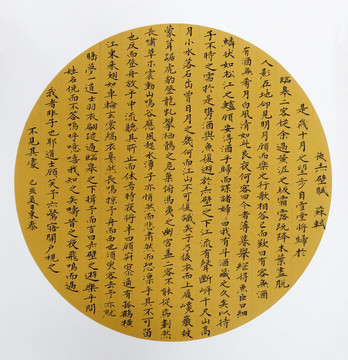 後赤壁賦 蘇軾
是歲十月之望步自雪堂將歸於
臨皋二客從余過黃泥之坂霜露既降木葉盡脫
人影在地仰見明月顧而樂之行歌相答已而歎曰有客無酒
有酒無肴月白風清如此良夜何客曰今者薄暮舉網得魚巨口細
鱗狀如松江之鱸顧安所得酒乎歸而謀諸婦曰我有斗酒藏之久矣以待
子不時之需於是攜酒與魚復遊於赤壁之下江流有聲斷岸千尺山高
月小水落石出曾日月之幾何而江山不可復識矣予乃攝衣而上履巉巖披
蒙茸踞虎豹登虯龍攀棲鶻之危巢俯馮夷之幽宮蓋二客不能從焉劃然
長嘯草木震動山鳴谷應風起水湧予亦悄然而悲肅然而恐凜乎其不可留
也反而登舟放乎中流聽其所止而休焉時夜將半四顧寂寥適有孤鶴橫
江東來翅如車輪玄裳縞衣戛然長鳴掠予舟而西也須臾客去予亦就
睡夢一道士羽衣翩躚過臨皋之下揖予而言曰赤壁之遊樂乎問
其姓名俛而不答嗚呼噫嘻我知之矣疇昔之夜飛鳴而過
我者非子也耶道士顧笑予亦驚寤開戶視之
不見其處 己亥夏日東泰